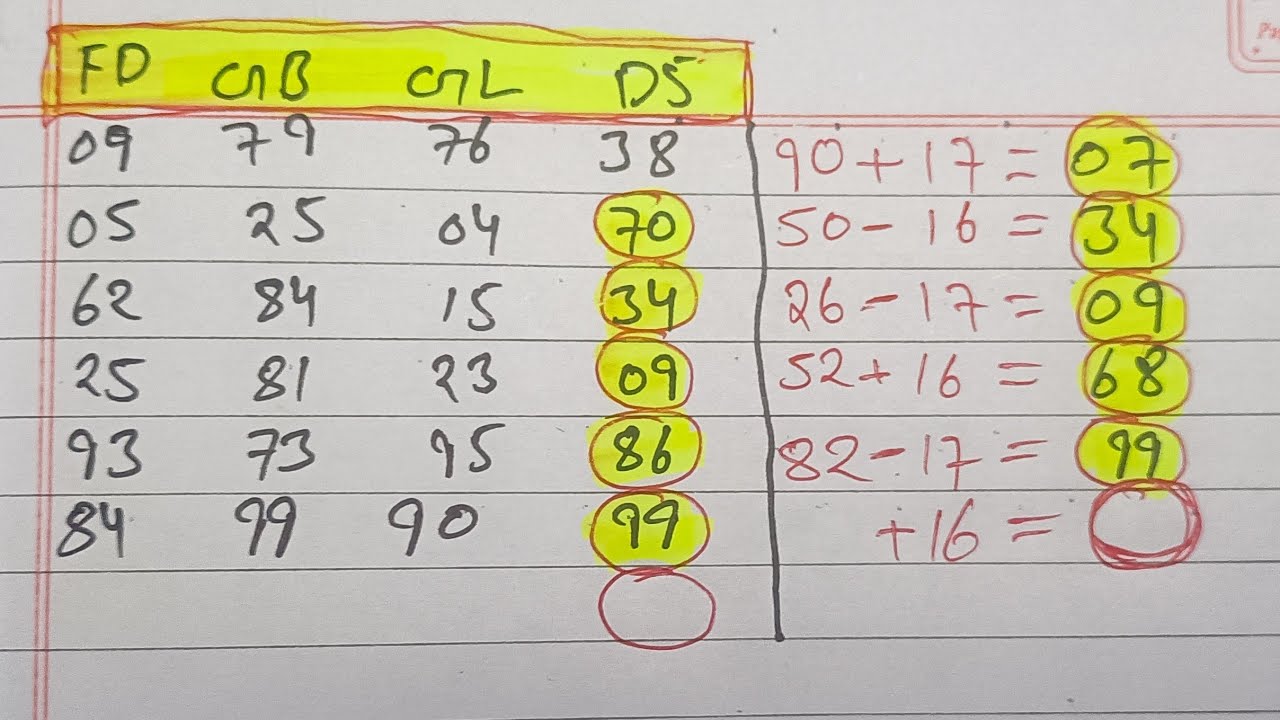 FD GB GL DS
09 79 76 38 90+17=07
05 25 04 70 50-16=34
62 84 15 34 26-17=09
25 81 23 09 52+16=68
93 73 95 86 82-17=99
84 99 90 99 +16=